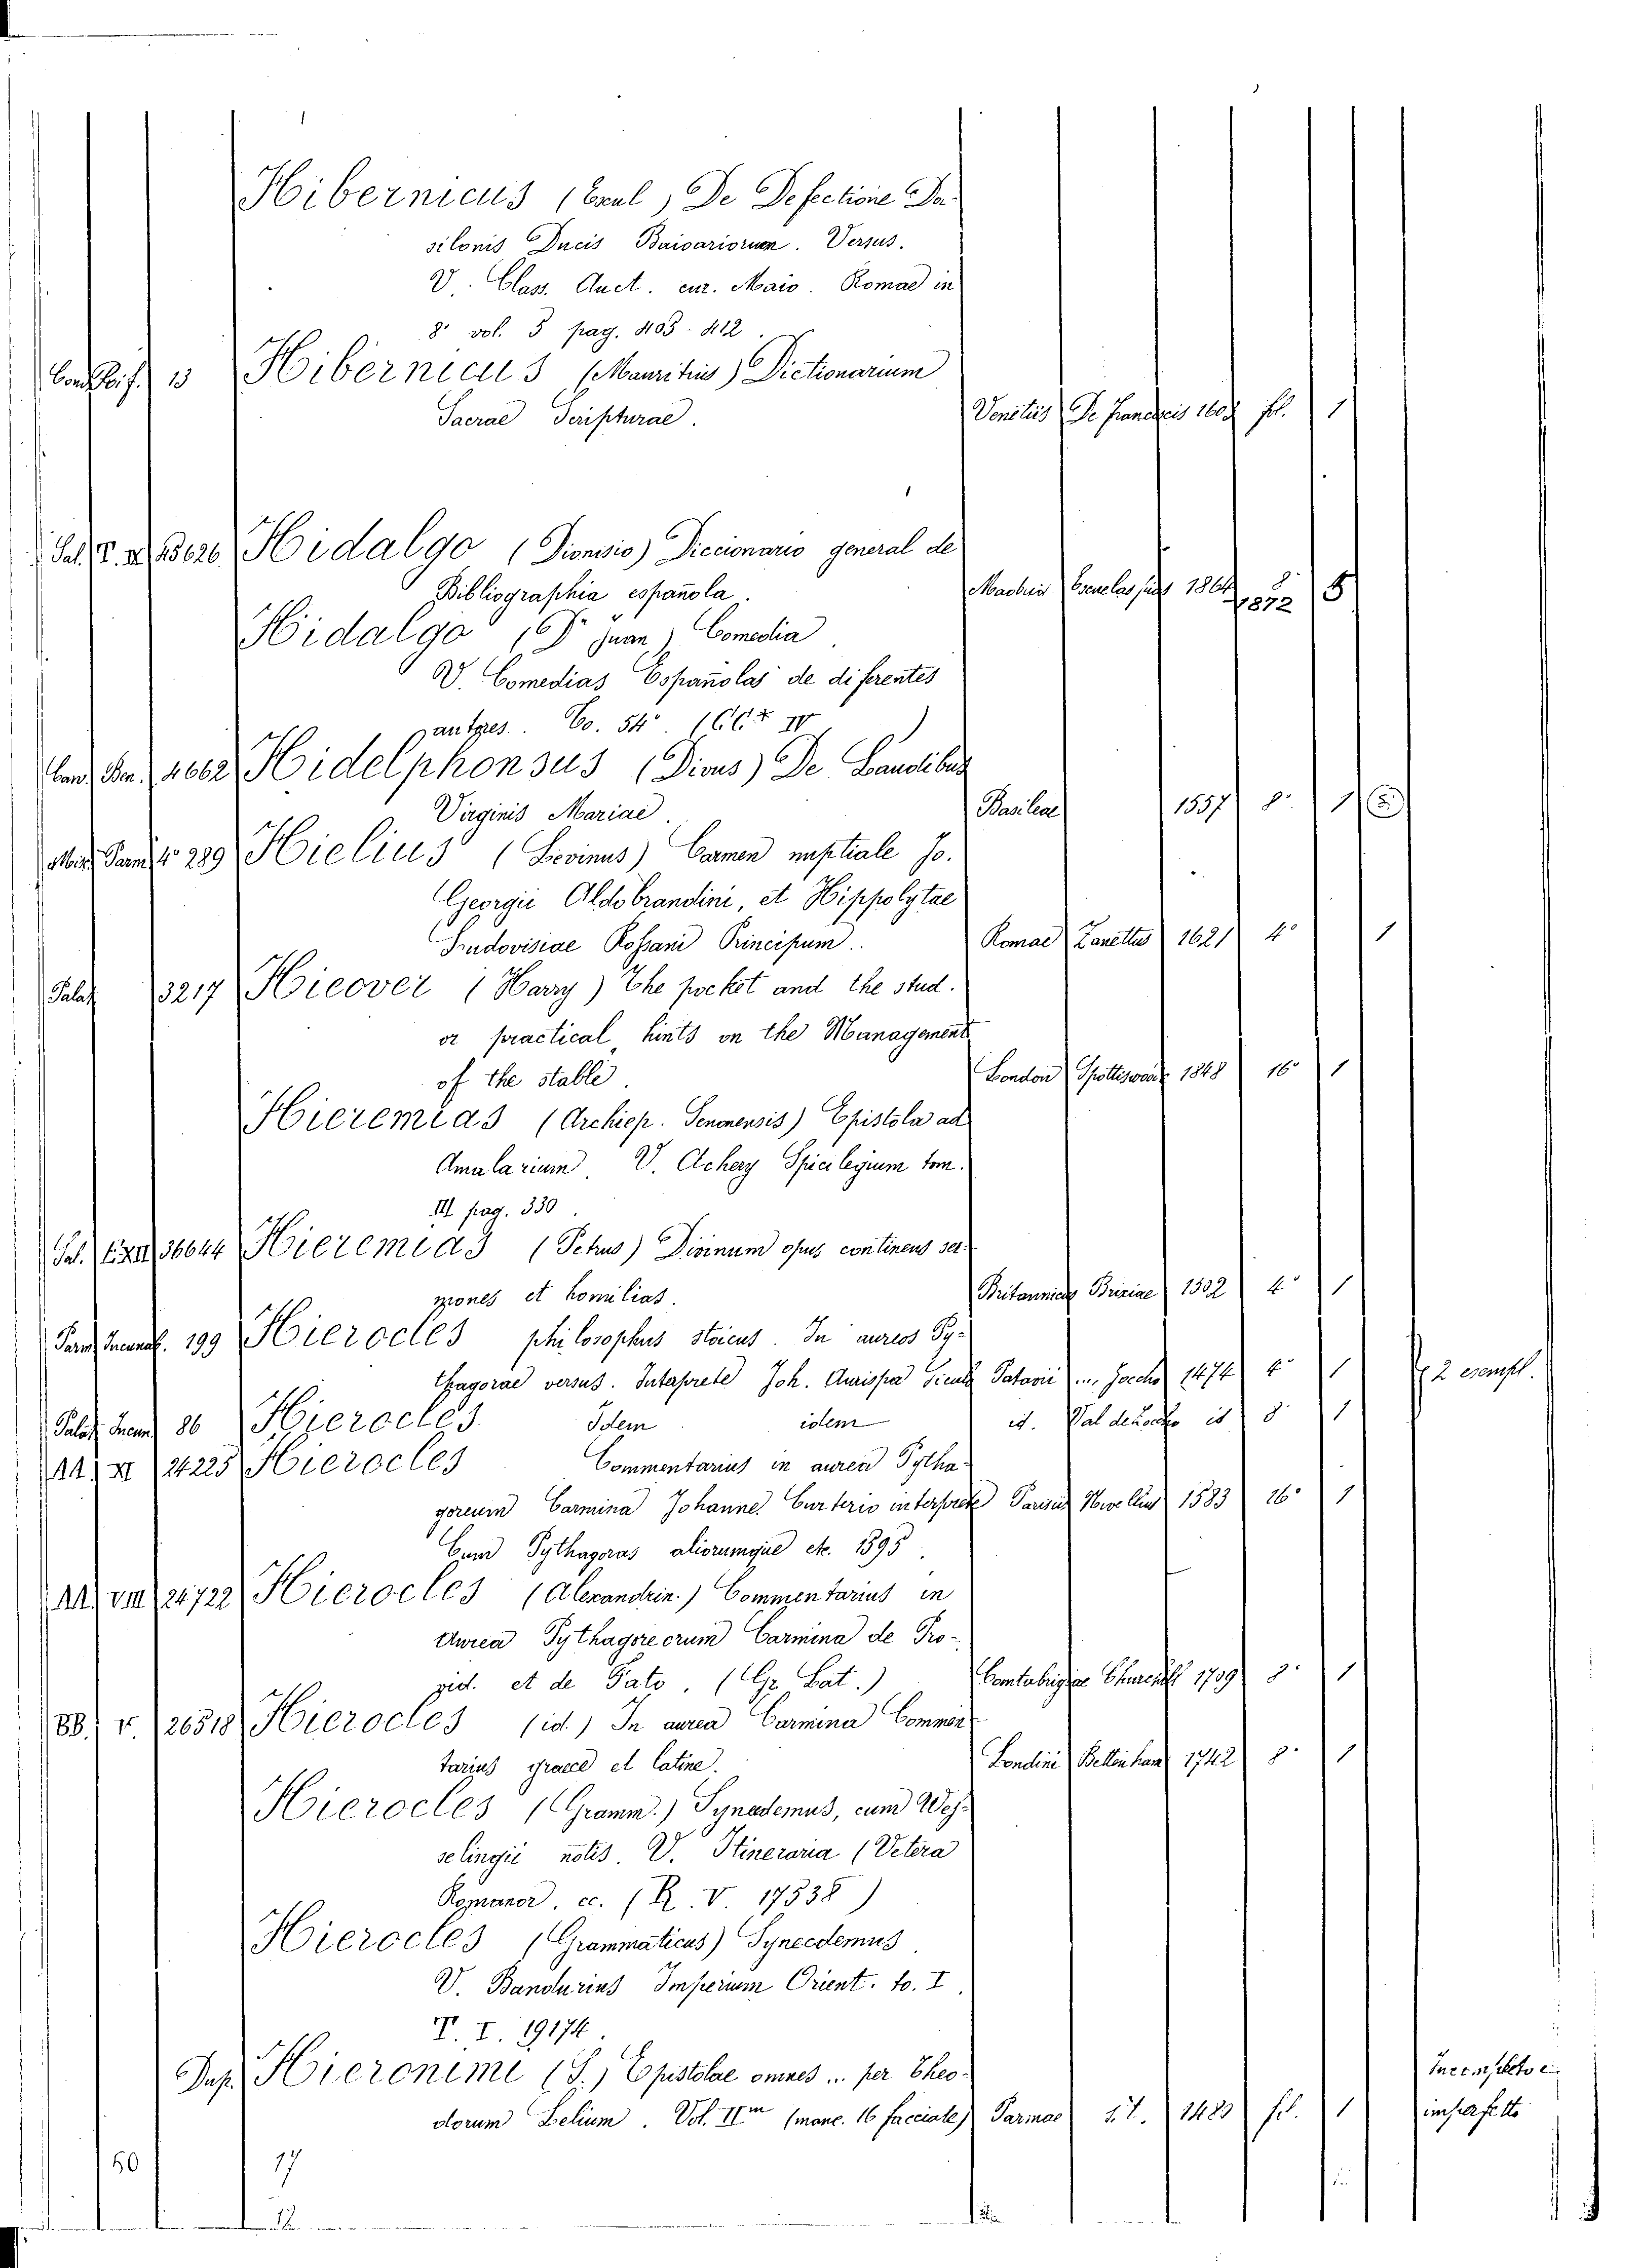 Hibernicus (Exul) De Defectione Da-
silonis Ducis Baivariorum. Versus.
V. Class. Auct. cur. Maio. Romae in
8° vol. 5 pag. 403-412.
13 Hibernicus (Mauritius) Dictionarium
Sacrae Scripturae. Venetiis De Franciscis 1603 fol. 1
Sal. 13626 Hidalgo (Dionisio) Diccionario general de
Bibliographia española. Madrid Escuelas 1864 1872 8° 5
Hidalgo (Dr Juan) Comedia
V. Comedias Españolas de diferentes
autores. Co. 54
4662 Hidelphonsus (Divus) De Laudibus
Virginis Mariae. Basileae 1557 8° 1
289 Hielius (Levinus) Carmen nuptiale Jo.
Georgii Aldobrandini, et Hippolytae
Ludovisiae Rossani Principum. Romae Zanettus 1621 4° 1
Palat 13217 Hieover (Harry) The pocket and the stud.
or practical hints on the Management
of the stable. London Spottiswoode 1848 16° 1
Hieremias (Archiep. Senonensis) Epistola ad
Amalarium V. Achery Spicilegium tom.
III pag. 330.
Sal. 36644 Hieremias (Petrus) Divinum opus continens ser-
mones et homilias. Britannicus Brixiae 1502 4° 1
Parm. Incunab. 199 Hierocles philosophus stoicus. In aureos Py-
thagorae versus. Interprete Joh. Aurispa Siculo Patavii 1474 4° 1 2 esempl.
Palat. Incun. 86 Hierocles Idem idem id. Val de id 8° 1
AA. XI 24225 Hierocles Commentarius in aurea Pytha-
goreum Carmina Johanne Curterio interprete Parisiis Nivellius 1583 16° 1
Cum Pythagoras aliorumque etc. 1595.
AA. VIII 24722 Hierocles (Alexandrin.) Commentarius in
Aurea Pythagoreorum Carmina de Pro-
vid. et de Fato. (Gr. Lat.) Cantabrigiae Churchill 1709 8° 1
BB. V. 26518 Hierocles (id.) In aurea Carmina Commen-
tarius graece et latine. Londini Bettenham 1742 8° 1
Hierocles (Gramm.) Synecdemus, cum Wes-
selingii notis. V. Itineraria (Vetera
Romanor. ec. (R. V. 17538)
Hierocles (Grammaticus) Synecdemus.
V. Bandurius Imperium Orient. to. I.
T. I. 19174.
Dup. Hieronimi (S.) Epistolae omnes... per Theo-
dorum Lelium. Vol. IIm (manc. 16 facciate) Parmae s.t. 1483 fol. 1 Incompleto e
imperfetto
50 17
12